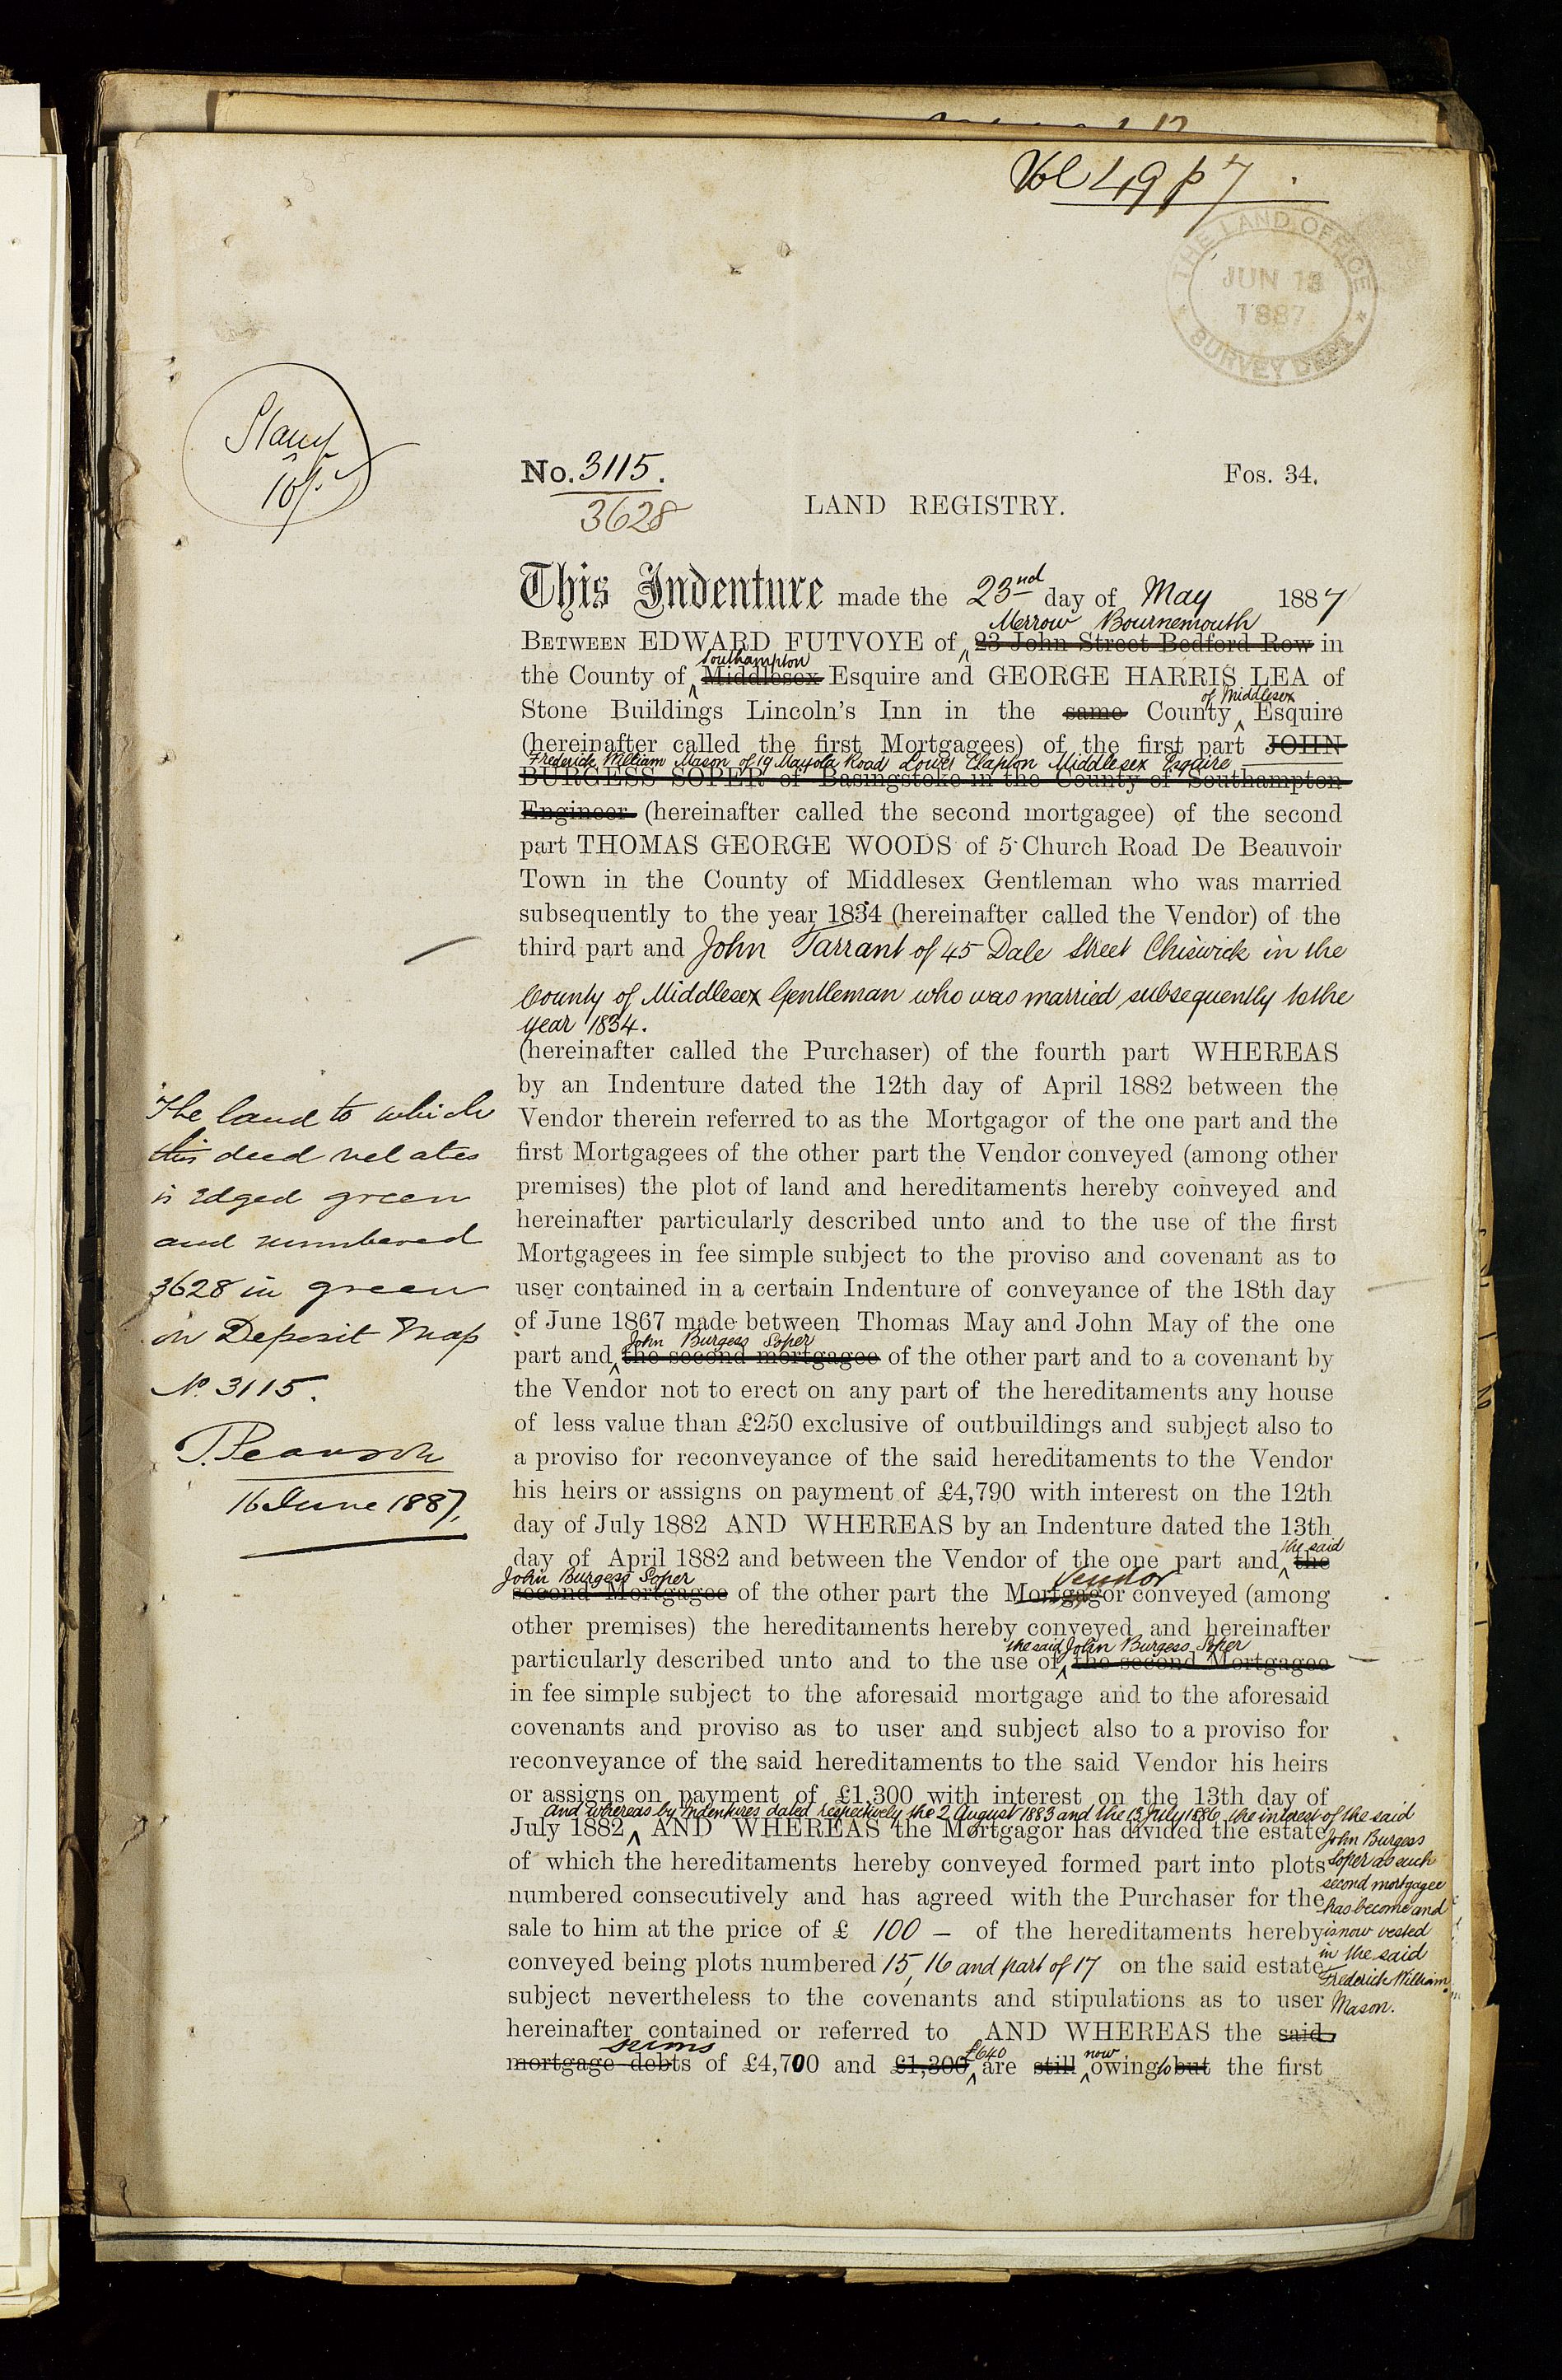 Vol 49 p 7
THE LAND OFFICE
JUN 13
1887
SURVEY DEPT
Stamp
10/-
No. 3115.
3628
Fos. 34.
LAND REGISTRY.
This Indenture made the 23nd day of May 1887
Merrow Bournemouth
BETWEEN EDWARD FUTVOYE of 23 John Street Bedford Row in
Southampton
the County of Middlesex Esquire and GEORGE HARRIS LEA of
of Middlesex
Stone Buildings Lincoln's Inn in the same County Esquire
(hereinafter called the first Mortgagees) of the first part JOHN
Frederick William Mason of 19 Mayola Road Lower Clapton Middlesex Esquire
BURGESS SOPER of Basingstoke in the County of Southampton
Engineer (hereinafter called the second mortgagee) of the second
part THOMAS GEORGE WOODS of 5 Church Road De Beauvoir
Town in the County of Middlesex Gentleman who was married
subsequently to the year 1834 (hereinafter called the Vendor) of the
third part and John Tarrant of 45 Dale Street Chiswick in the
County of Middlesex Gentleman who was married subsequently to the
year 1834.
(hereinafter called the Purchaser) of the fourth part WHEREAS
by an Indenture dated the 12th day of April 1882 between the
Vendor therein referred to as the Mortgagor of the one part and the
first Mortgagees of the other part the Vendor conveyed (among other
premises) the plot of land and hereditaments hereby conveyed and
hereinafter particularly described unto and to the use of the first
Mortgagees in fee simple subject to the proviso and covenant as to
user contained in a certain Indenture of conveyance of the 18th day
of June 1867 made between Thomas May and John May of the one
John Burgess Soper
part and the second mortgagee of the other part and to a covenant by
the Vendor not to erect on any part of the hereditaments any house
of less value than £250 exclusive of outbuildings and subject also to
a proviso for reconveyance of the said hereditaments to the Vendor
his heirs or assigns on payment of £4,790 with interest on the 12th
day of July 1882 AND WHEREAS by an Indenture dated the 13th
the said
day of April 1882 and between the Vendor of the one part and the
John Burgess Soper
Vendor
second Mortgagee of the other part the Mortgagor conveyed (among
other premises) the hereditaments hereby conveyed and hereinafter
the said John Burgess Soper
particularly described unto and to the use of the second Mortgagee
in fee simple subject to the aforesaid mortgage and to the aforesaid
covenants and proviso as to user and subject also to a proviso for
reconveyance of the said hereditaments to the said Vendor his heirs
or assigns on payment of £1,300 with interest on the 13th day of
and whereas by Indentures dated respectively the 2 August 1883 and the 13 July 1886 the interest of the said
July 1882 AND WHEREAS the Mortgagor has divided the estate
of which the hereditaments hereby conveyed formed part into plots
numbered consecutively and has agreed with the Purchaser for the
sale to him at the price of £ 100 — of the hereditaments hereby
conveyed being plots numbered 15, 16 and part of 17 on the said estate
subject nevertheless to the covenants and stipulations as to user
hereinafter contained or referred to AND WHEREAS the said
sums
£640
now
mortgage debts of £4,700 and £1,300 are still owing to but the first
John Burgess
Soper as such
second mortgagee
has become and
is now vested
in the said
Frederick William
Mason.
The land to which
this deed relates
is edged green
and numbered
3628 in green
on Deposit Map
No. 3115.
T. Pearson
16 June 1887.